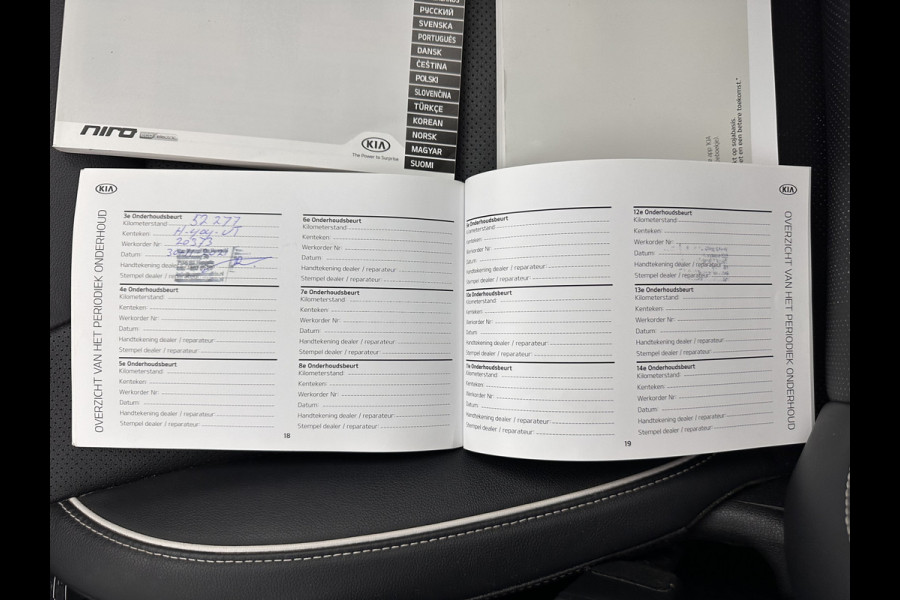 РУССКИЙ
SVENSKA
PORTUGUÊS
DANSK
ČEŠTINA
POLSKI
SLOVENČINA
TÜRKÇE
KOREAN
NORSK
MAGYAR
SUOMI
NIRO
KIA
The Power to Surprise
KIA
OVERZICHT VAN HET PERIODIEK ONDERHOUD
3e Onderhoudsbeurt
Kilometerstand: 52 277
Kenteken:
Werkorder Nr: 20573
Datum:
Handtekening
Stempel dealer / repar
4e Onderhoudsbeurt
Kilometerstand:
Kenteken:
Werkorder Nr:
Datum:
Handtekening dealer / reparateur:
Stempel dealer / reparateur:
5e Onderhoudsbeurt
Kilometerstand:
Kenteken:
Werkorder Nr:
Datum:
Handtekening dealer / reparateur:
Stempel dealer / reparateur:
6e Onderhoudsbeurt
Kilometerstand:
Kenteken:
Werkorder Nr:
Datum:
Handtekening dealer / reparateur:
Stempel dealer / reparateur:
7e Onderhoudsbeurt
Kilometerstand:
Kenteken:
Werkorder Nr:
Datum:
Handtekening dealer / reparateur:
Stempel dealer / reparateur:
8e Onderhoudsbeurt
Kilometerstand:
Kenteken:
Werkorder Nr:
Datum:
Handtekening dealer / reparateur:
Stempel dealer / reparateur:
18
Onderhoudsbeurt
ilometerstand:
enteken:
Werkorder Nr:
Datum:
andtekening dealer / reparateur:
tempel dealer / reparateur:
10e Onderhoudsbeurt
Kilometerstand:
enteken:
erkorder Nr:
Datum:
andtekening dealer / reparateur:
tempel dealer / reparateur:
11e Onderhoudsbeurt
Kilometerstand:
Kenteken:
Werkorder Nr:
Datum:
Handtekening dealer / reparateur:
Stempel dealer / reparateur:
12e Onderhoudsbeurt
Kilometerstand:
Kenteken:
Werkorder Nr:
Datum:
Handtekening dealer / reparateur:
Stempel dealer / reparateur:
13e Onderhoudsbeurt
Kilometerstand:
Kenteken:
Werkorder Nr:
Datum:
Handtekening dealer / reparateur:
Stempel dealer / reparateur:
14e Onderhoudsbeurt
Kilometerstand:
Kenteken:
Werkorder Nr:
Datum:
Handtekening dealer / reparateur:
Stempel dealer / reparateur:
19
KIA
OVERZICHT VAN HET PERIODIEK ONDERHOUD
app KIA
kt op sojabasis.
et en een betere toekomst."